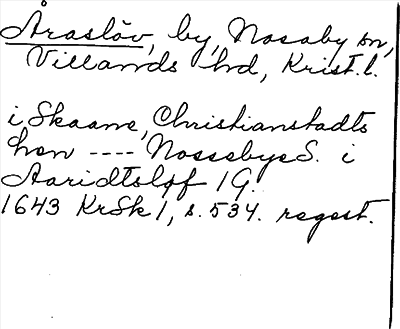 Åraslöv, by, Nosaby sn,
Villands hd, Krist. l.
i Skaane, Christianstadts
Len ---- NossebyeS. i
Aaridtsløf 1G.
1643 KrSk1, s. 534. regest.